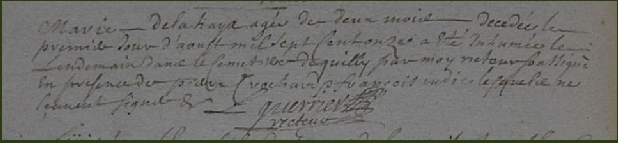 Marie delahaya agée de deux mois decedée le
premier Jour d'aoust mil sept cent onze a été Inhumée le
Lendemain dans le cimetiere de quilly par moy recteur soussigné
En presence de pierre françois lesquels ne
sçavent signer
guerrier
recteur